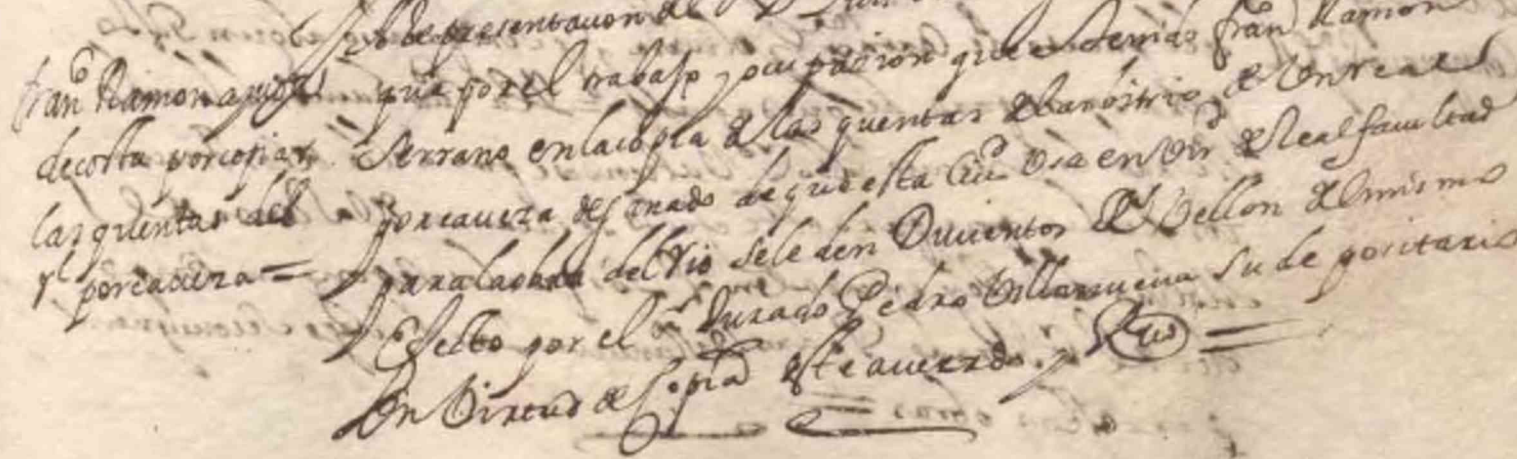 de presentacion de
fran.co Ramon ayuda
de costa por copiar
las quentas del
Rl por caveza =
que por el trabajo y ocupacion que a tenido fran.co Ramon
Serrano en la copia de las quentas del arbitrio de Un real
por caveza de ganado de que esta Ciud usa en Vird de Real facultad
para la obra del Rio se le den Ducientos Rs Vellon del mismo
Efecto por el sr Jurado Pedro Villanueva su depositario
En Virtud de Copia de este acuerdo.